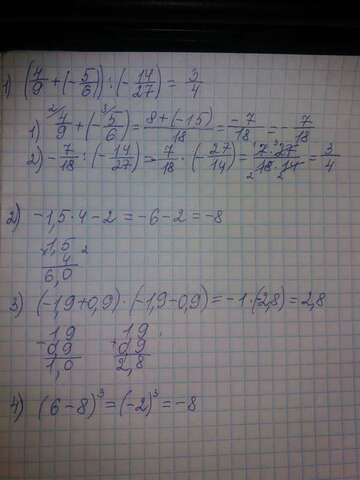 1) (4/9 + (-5/6)) : (-14/27) = 3/4
1) ²/4/9 + (-³/5/6) = 8+(-15)/18 = -7/18 = -7/18
2) -7/18 : (-14/27) = -7/18 · (-27/14) = ¹7·³27/₂18·14₂ = 3/4
2) -1,5·4-2 = -6-2 = -8
1,5
4
6,0
3) (-1,9+0,9)·(-1,9-0,9) = -1·(-2,8) = 2,8
-1,9 +1,9
0,9 0,9
1,0 2,8
4) (6-8)³ = (-2)³ = -8